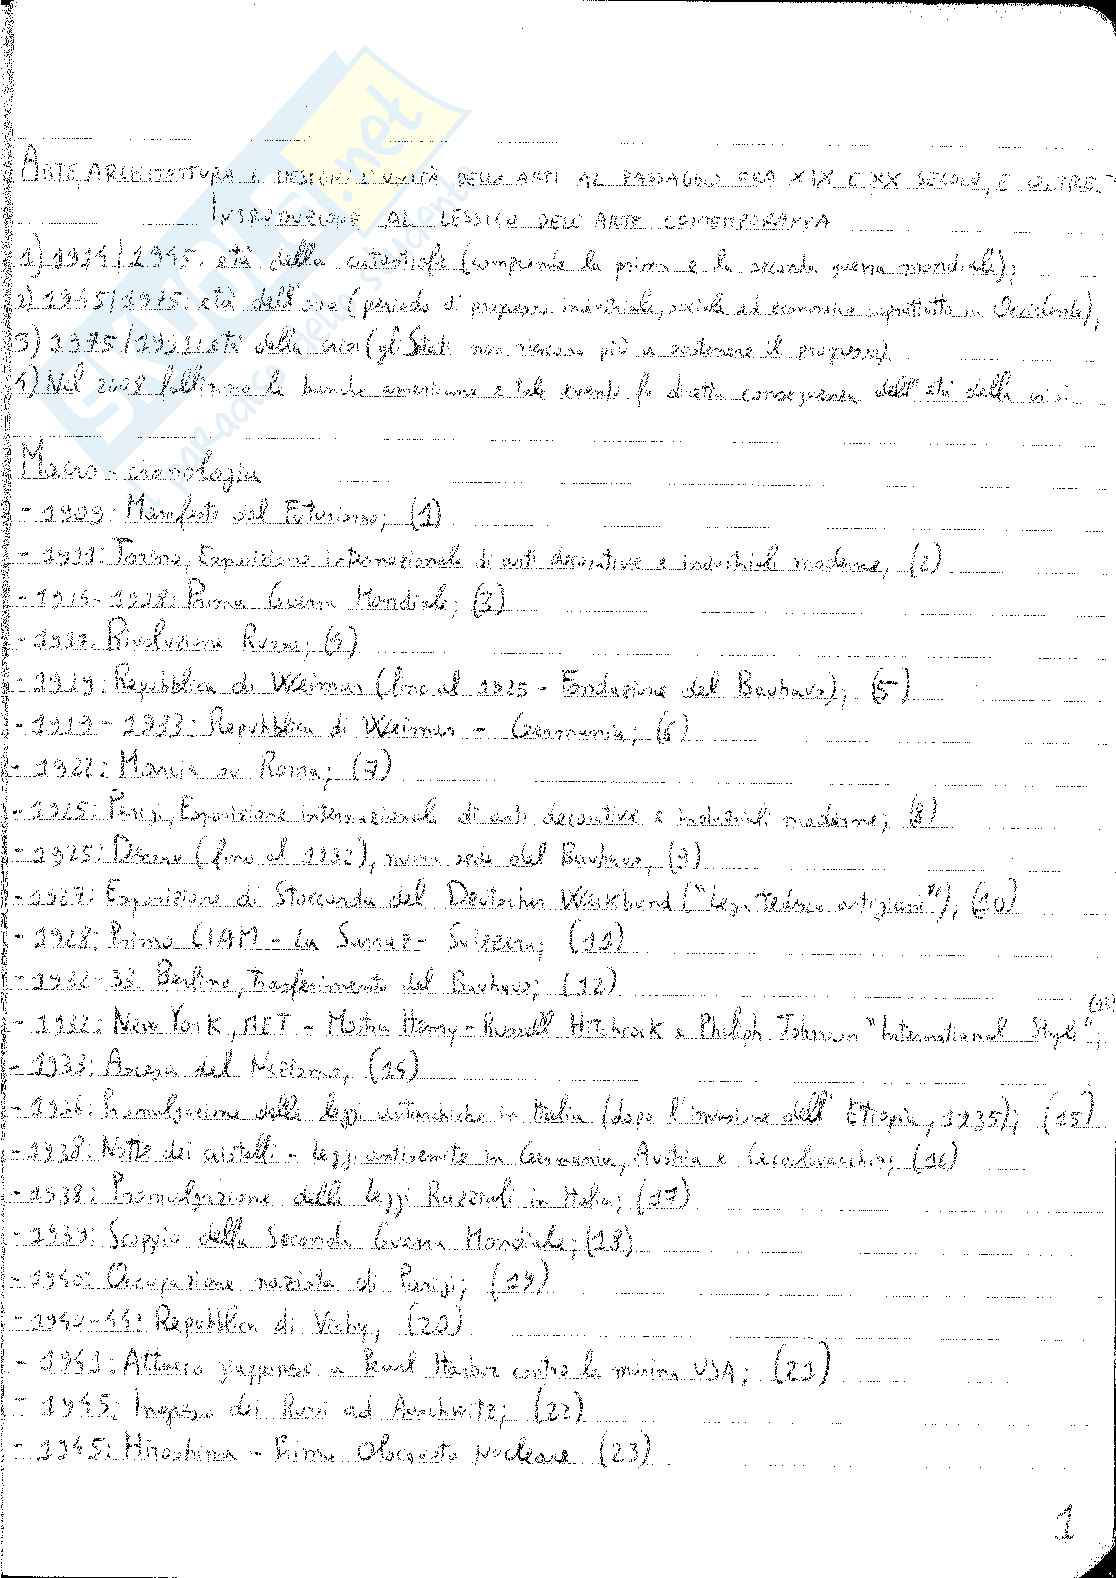 ARTE, ARCHITETTURA E DESIGN. L'UNITÀ DELLE ARTI AL PASSAGGIO FRA XIX E XX SECOLO, E OLTRE.
INTRODUZIONE AL LESSICO DELL'ARTE CONTEMPORANEA
1) 1914/1945: età della catastrofe (comprende la prima e la seconda guerra mondiale);
2) 1945/1975: età dell'oro (periodo di progresso industriale, sociale ed economico soprattutto in Occidente);
3) 1975/1991: età della crisi (gli Stati non riescono più a sostenere il progresso).
4) Nel 2008 falliscono le banche americane e tale evento fu diretta conseguenza dell'età della crisi
Macro-cronologia
- 1909: Manifesto del Futurismo; (1)
- 1911: Torino, Esposizione internazionale di arti decorative e industriali moderne; (2)
- 1914-1918: Prima Guerra Mondiale; (3)
- 1917: Rivoluzione Russa; (4)
- 1919: Repubblica di Weimar (fino al 1925 - Fondazione del Bauhaus); (5)
- 1919-1933: Repubblica di Weimar - Germania; (6)
- 1922: Marcia su Roma; (7)
- 1925: Parigi, Esposizione internazionale di arti decorative e industriali moderne; (8)
- 1925: Dessau (fino al 1932), nuova sede del Bauhaus; (9)
- 1927: Esposizione di Stoccarda del Deutscher Werkbund ("Lega Tedesca artigiani"); (10)
- 1928: Primo CIAM - La Sarraz - Svizzera; (11)
- 1932-33 Berlino, Trasferimento del Bauhaus; (12)
- 1932: New York, MET - Mostra Henry-Russell Hitchcock e Philip Johnson "International Style"; (13)
- 1933: Ascesa del Nazismo; (14)
- 1936: Promulgazione delle leggi autarchiche in Italia (dopo l'invasione dell'Etiopia, 1935); (15)
- 1938: Notte dei cristalli - leggi antisemite in Germania, Austria e Cecoslovacchia; (16)
- 1938: Promulgazione delle Leggi Razziali in Italia; (17)
- 1939: Scoppio della Seconda Guerra Mondiale; (18)
- 1940: Occupazione nazista di Parigi; (19)
- 1940-44: Repubblica di Vichy; (20)
- 1941: Attacco giapponese a Pearl Harbor contro la marina USA; (21)
- 1945: Ingresso dei Russi ad Auschwitz; (22)
- 1945: Hiroshima - Primo Olocausto Nucleare (23)
1